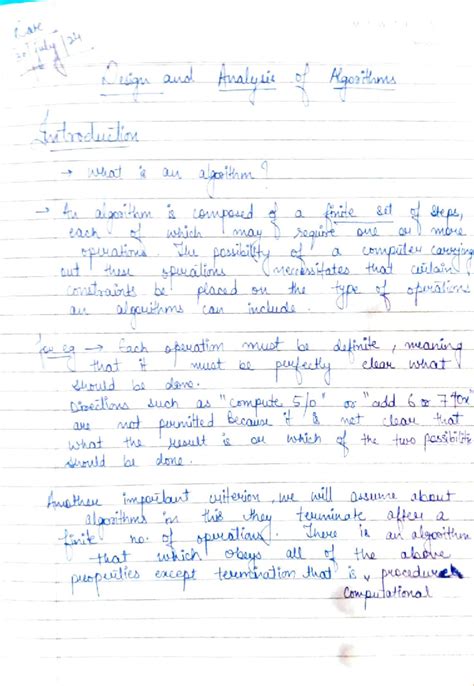 Date
30 July/24
Design and Analysis of Algorithms
Introduction
→ What is an algorithm?
→ An algorithm is composed of a finite set of steps,
each of which may require one or more
operations. The possibility of a computer carrying
out these operations necessitates that certain
constraints be placed on the type of operations
an algorithms can include.
for eg → Each operation must be definite, meaning
that it must be perfectly clear what
should be done.
Directions such as "compute 5/0" or "add 6 or 7 to x"
are not permitted because it is not clear that
what the result is or which of the two possibilities
should be done.
Another important criterion, we will assume about
algorithms in this they terminate after a
finite no. of operations. There is an algorithm
that which obeys all of the above
properties except termination that is procedure
Computational